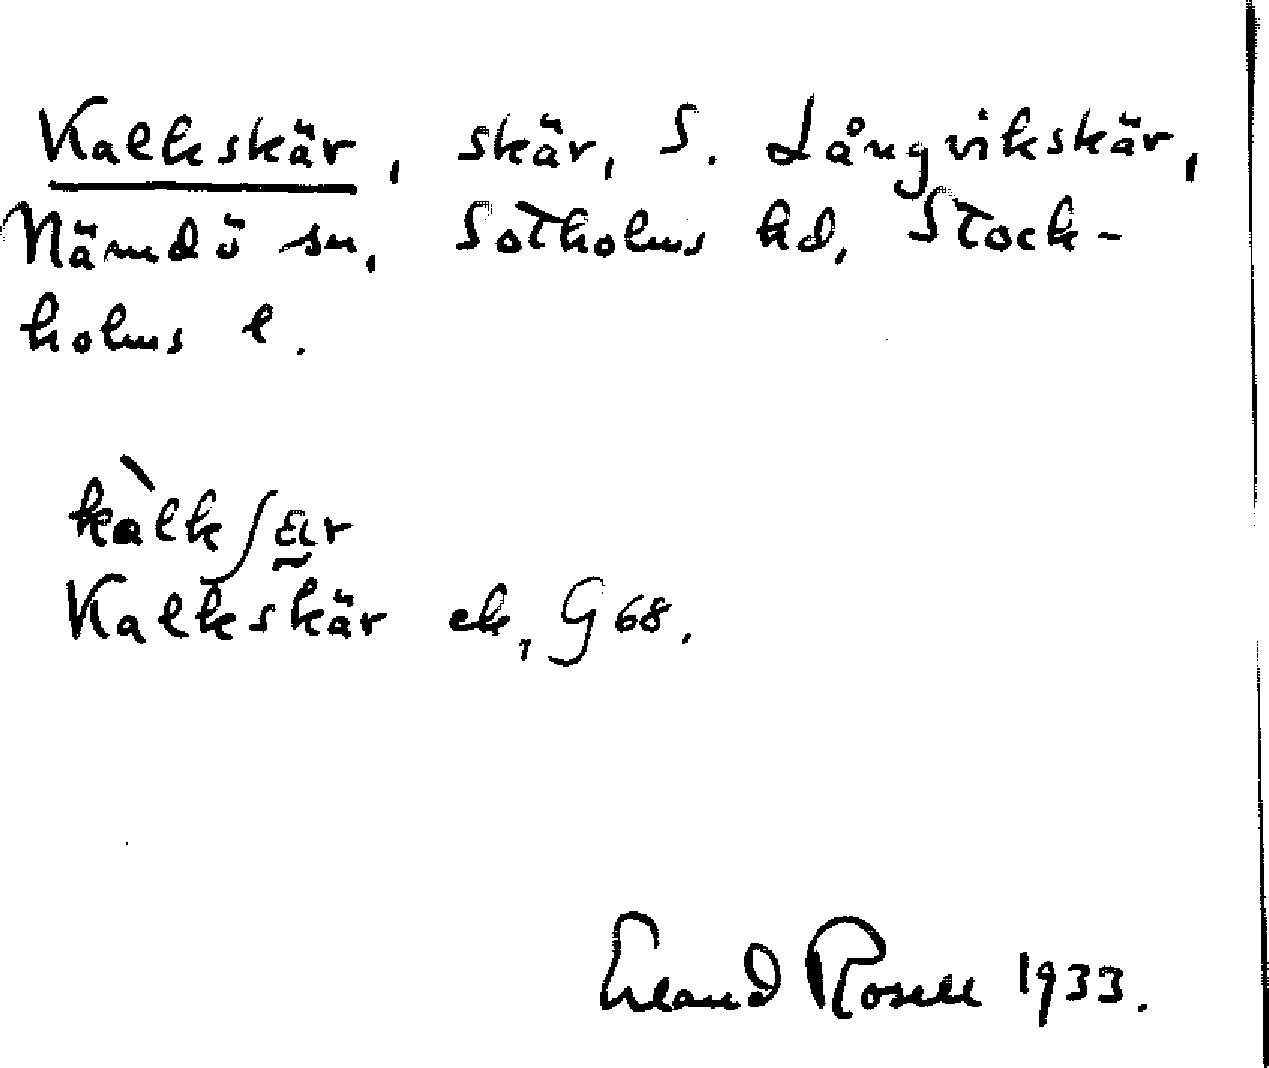 Kalkskär, skär, S. Långvikskär,
Nämdö sn, Sotholms hd, Stock-
holms l.
kàlkʃæ̰r
Kalkskär ek, G 68.
Erland Rosell 1933.